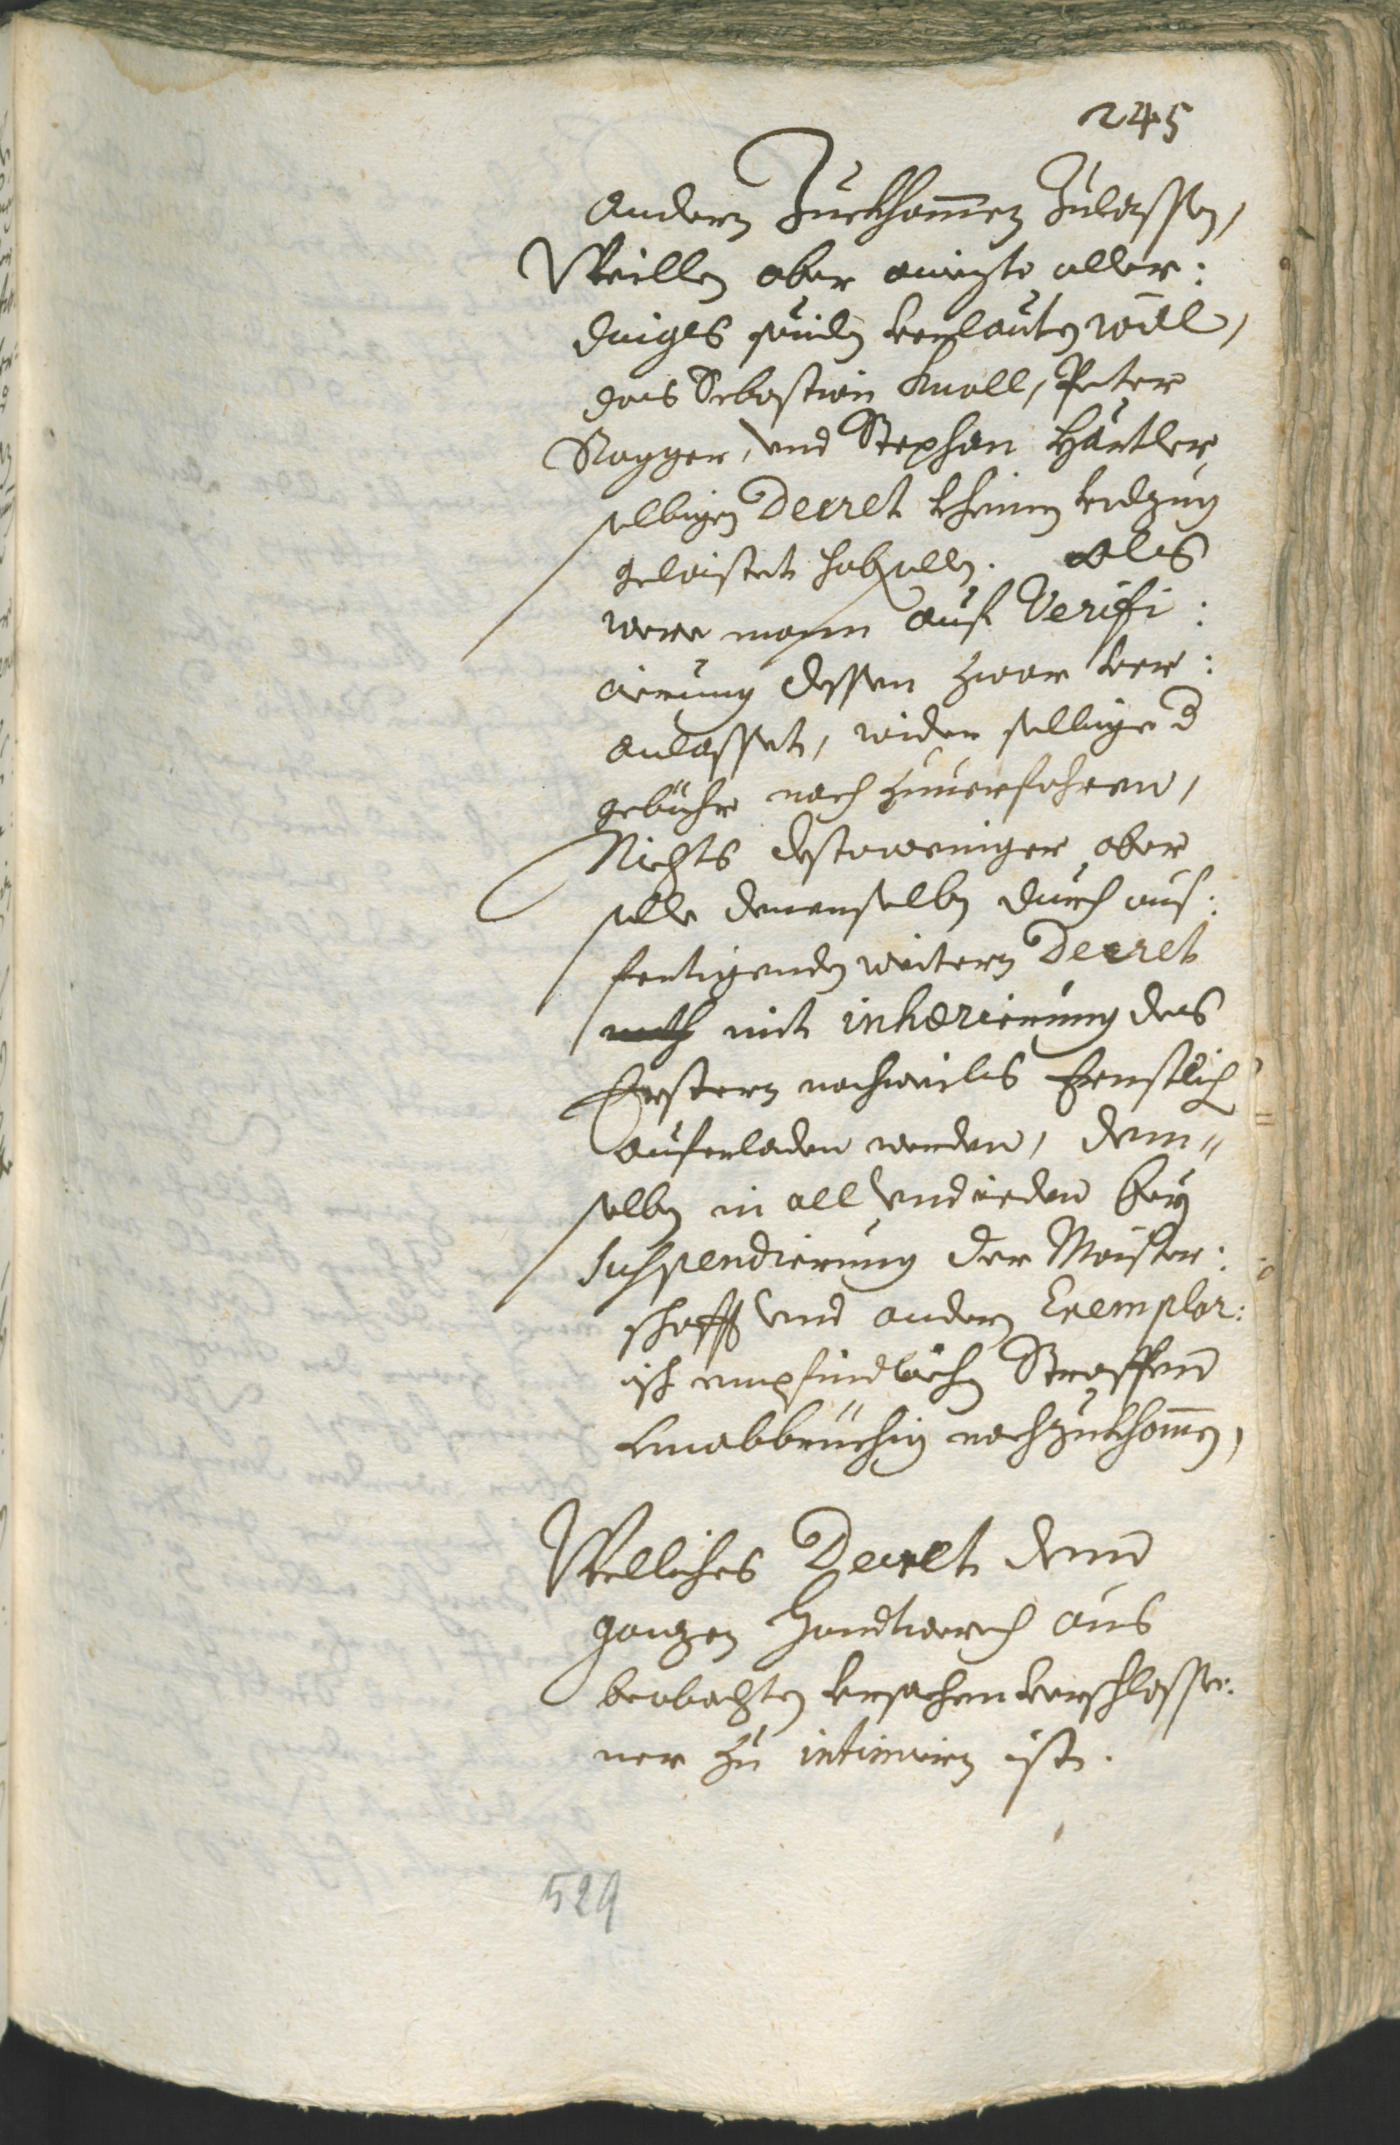 245
andern Zuekhomen Zulassen,
Weillen aber anietzto aller:
dings verlauten will,
das Sebastian Knoll, Peter
Nagger, vnd Stephan Härtler
selbigen Decret kheinen volzug
gelaistet haben sollen. Als
were mann auf Verifi:
cierung dessen zwar ver:
anlasset, wider selbige d
gebühr nach zuuerfahren,
Nichts destoweniger aber
solle denenselben durch aus:
fertigenden weitern Decret
mit inhærierung des
Erstern nochmals Ernstlich
auferladen werden, dem„
selben in all vnd ieden bey
suspendierung der Maister:
schafft vnd andern Exemplar:
isch empfindlichen Straffen
vnabbrüchig nachzukhomen,
Welliches Decret dem
ganzen Handtwerch aus
beobachten vrsachen verschlosse:
ner zu intimiern ist.
529